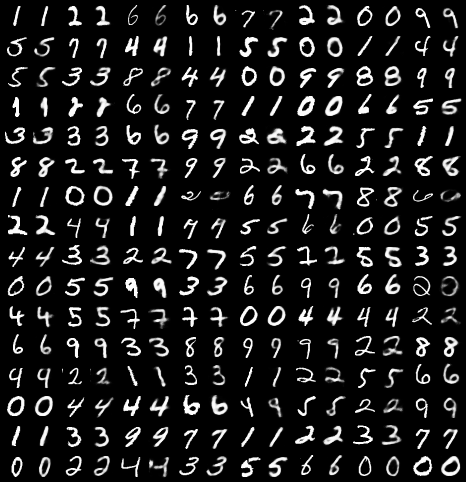 1 1 2 2 6 6 6 6 7 7 2 2 0 0 9 9
5 5 7 7 4 4 1 1 5 5 0 0 1 1 4 4
5 5 3 3 8 8 4 4 0 0 9 9 8 8 9 9
1 1 8 8 6 6 7 7 1 1 0 0 6 6 5 5
3 3 3 3 6 6 9 9 2 2 2 2 5 5 1 1
8 8 2 2 7 7 9 9 2 2 6 6 2 2 8 8
1 1 0 0 1 1 2 6 6 7 7 8 8 6
2 2 4 4 1 1 9 9 5 5 6 6 0 0 5 5
4 4 3 3 2 2 7 7 5 5 7 7 5 5 3 3
0 0 5 5 9 9 3 3 6 6 9 9 6 6 2
4 4 5 5 7 7 7 7 0 0 4 4 4 4 2 2
6 6 9 9 3 3 8 8 9 9 9 9 2 2 8 8
9 9 2 2 1 1 3 3 1 1 2 2 5 5 6 6
0 0 4 4 4 4 6 6 4 9 5 5 2 2 9 9
1 1 3 3 9 9 7 7 1 1 2 2 3 3 7 7
0 0 2 2 4 4 3 3 5 5 6 6 0 0 0 0